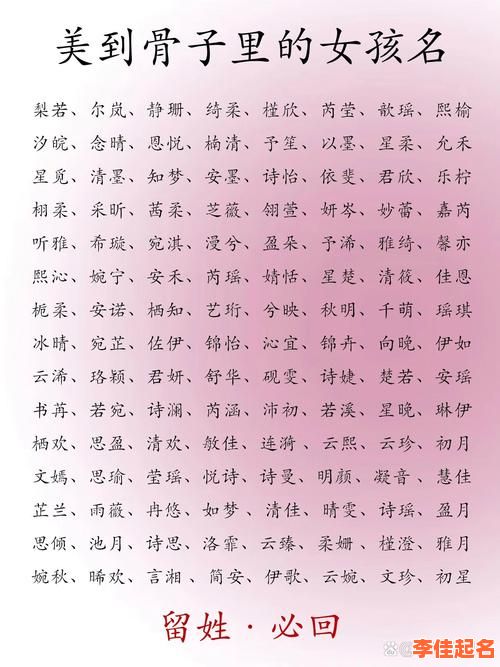 美到骨子里的女孩名
梨若、尔岚、静珊、绮柔、槿欣、芮莹、歆瑶、熙榆
汐皖、念晴、恩悦、楠清、予笙、以墨、星柔、允禾
星觅、清墨、知梦、安墨、诗怡、依斐、君欣、乐柠
栩柔、采昕、茜柔、芝薇、翎萱、妍岑、妙蕾、嘉芮
听雅、希璇、宛淇、漫兮、盈朵、予浠、雅绮、馨亦
熙沁、婉宁、安禾、芮瑶、婧恬、星楚、清筱、佳恩
栀柔、安诺、栖知、艺珩、兮映、秋明、千萌、瑶琪
冰晴、宛芷、佐伊、锦怡、沁宜、锦卉、向晚、伊如
云浠、珞颖、君妍、舒华、砚雯、诗婕、楚若、安瑶
书苒、若宛、诗澜、芮涵、沛初、若溪、星晚、琳伊
栖欢、思盈、清欢、敏佳、连漪、云熙、云珍、初月
文嫣、思瑜、莹瑶、悦诗、诗曼、明颜、凝音、慧佳
芷兰、雨薇、冉悠、如梦、清佳、晴雯、诗瑶、盈月
思倾、池月、诗思、洛霏、云臻、柔姗、槿澄、雅月
婉秋、晞欢、言湘、简安、伊歌、云婉、文珍、初星
留姓·必回
李佳起名